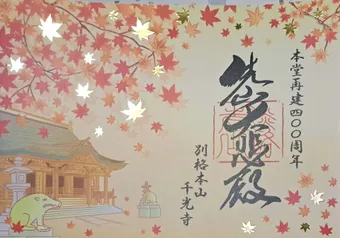 本堂再建四〇〇周年
殿
別格本山
千光寺